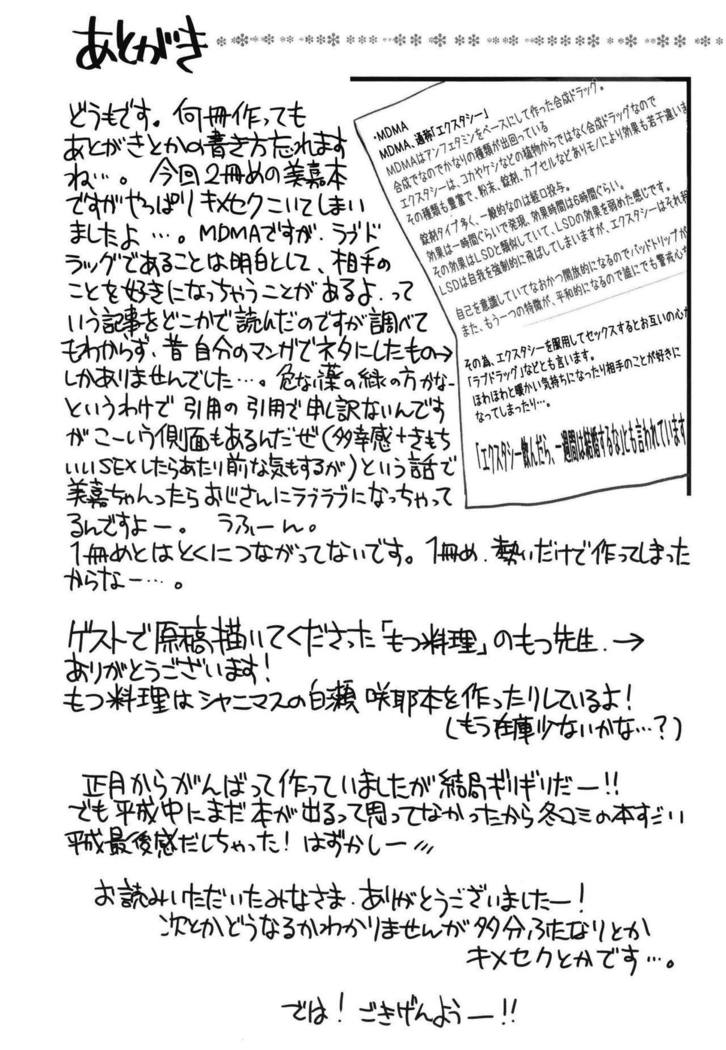 あとがき
どうもです。何冊作っても
あとがきとかの書き方忘れます
ね…。 今回2冊めの美嘉本
ですがやっぱりキメセクこいてしまい
ましたよ…。MDMAですが、ラブド
ラッグであることは明白として、相手の
ことを好きになっちゃうことがあるよ、って
いう記事をどこかで読んだのですが調べて
もわからず、昔自分のマンガでネタにしたもの→
しかありませんでした…。危な藻の緑の方かな-
というわけで引用の引用で申し訳ないんです
がこーいう側面もあるんだぜ(多幸感+きもち
いいSEXしたらあたり前な気もするが)という話で
美嘉ちゃんったらおじさんにラブラブになっちゃって
るんですよー。 うふーん。
1冊めとはとくにつながってないです。1冊め、勢いだけで作ってしまった
からなー…。
・MDMA
MDMA、通称「エクスタシー」
MDMAはアンフェタミンをベースにして作った合成ドラッグ。
合成でなのでかなりの種類が出回っている
エクスタシーは、コカやケシなどの植物からではなく合成ドラッグなので
その種類も豊富で、粉末、錠剤、カプセルなどありモノにより効果も若干違いま
錠剤タイプ多く、一般的なのは経口投与。
効果は一時間ぐらいで発現、効果時間は6時間ぐらい。
その効果はLSDと類似していて、LSDの効果を弱めた感じです。
LSDは自我を強制的に飛ばしてしまいますが、エクスタシーはそれ程
自己を意識していてなおかつ開放的になるのでバッドトリップが
また、もう一つの特徴が、平和的になるので誰にでも警戒心を
その為、エクスタシーを服用してセックスするとお互いの心が
「ラブドラッグ」などとも言います。
ほわほわと暖かい気持ちになったり相手のことが好きに
なってしまったり…。
「エクスタシー飲んだら、一週間は結婚するな」とも言われています
ゲストで原稿描いてくださった「もつ料理」のもつ先生、→
ありがとうございます!
もつ料理はシャニマスの白瀬 咲耶本を作ったりしているよ!
(もう在庫少ないかな…?)
正月からがんばって作っていましたが結局ギリギリだー!!
でも平成中にまだ本が出るって思ってなかったから冬コミの本すごい
平成最後感だしちゃった! はずかしー〃
お読みいただいたみなさま、ありがとうございましたー!
次とかどうなるかわかりませんが多分ふたなりとか
キメセクとかです…。
では! ごきげんようー!!